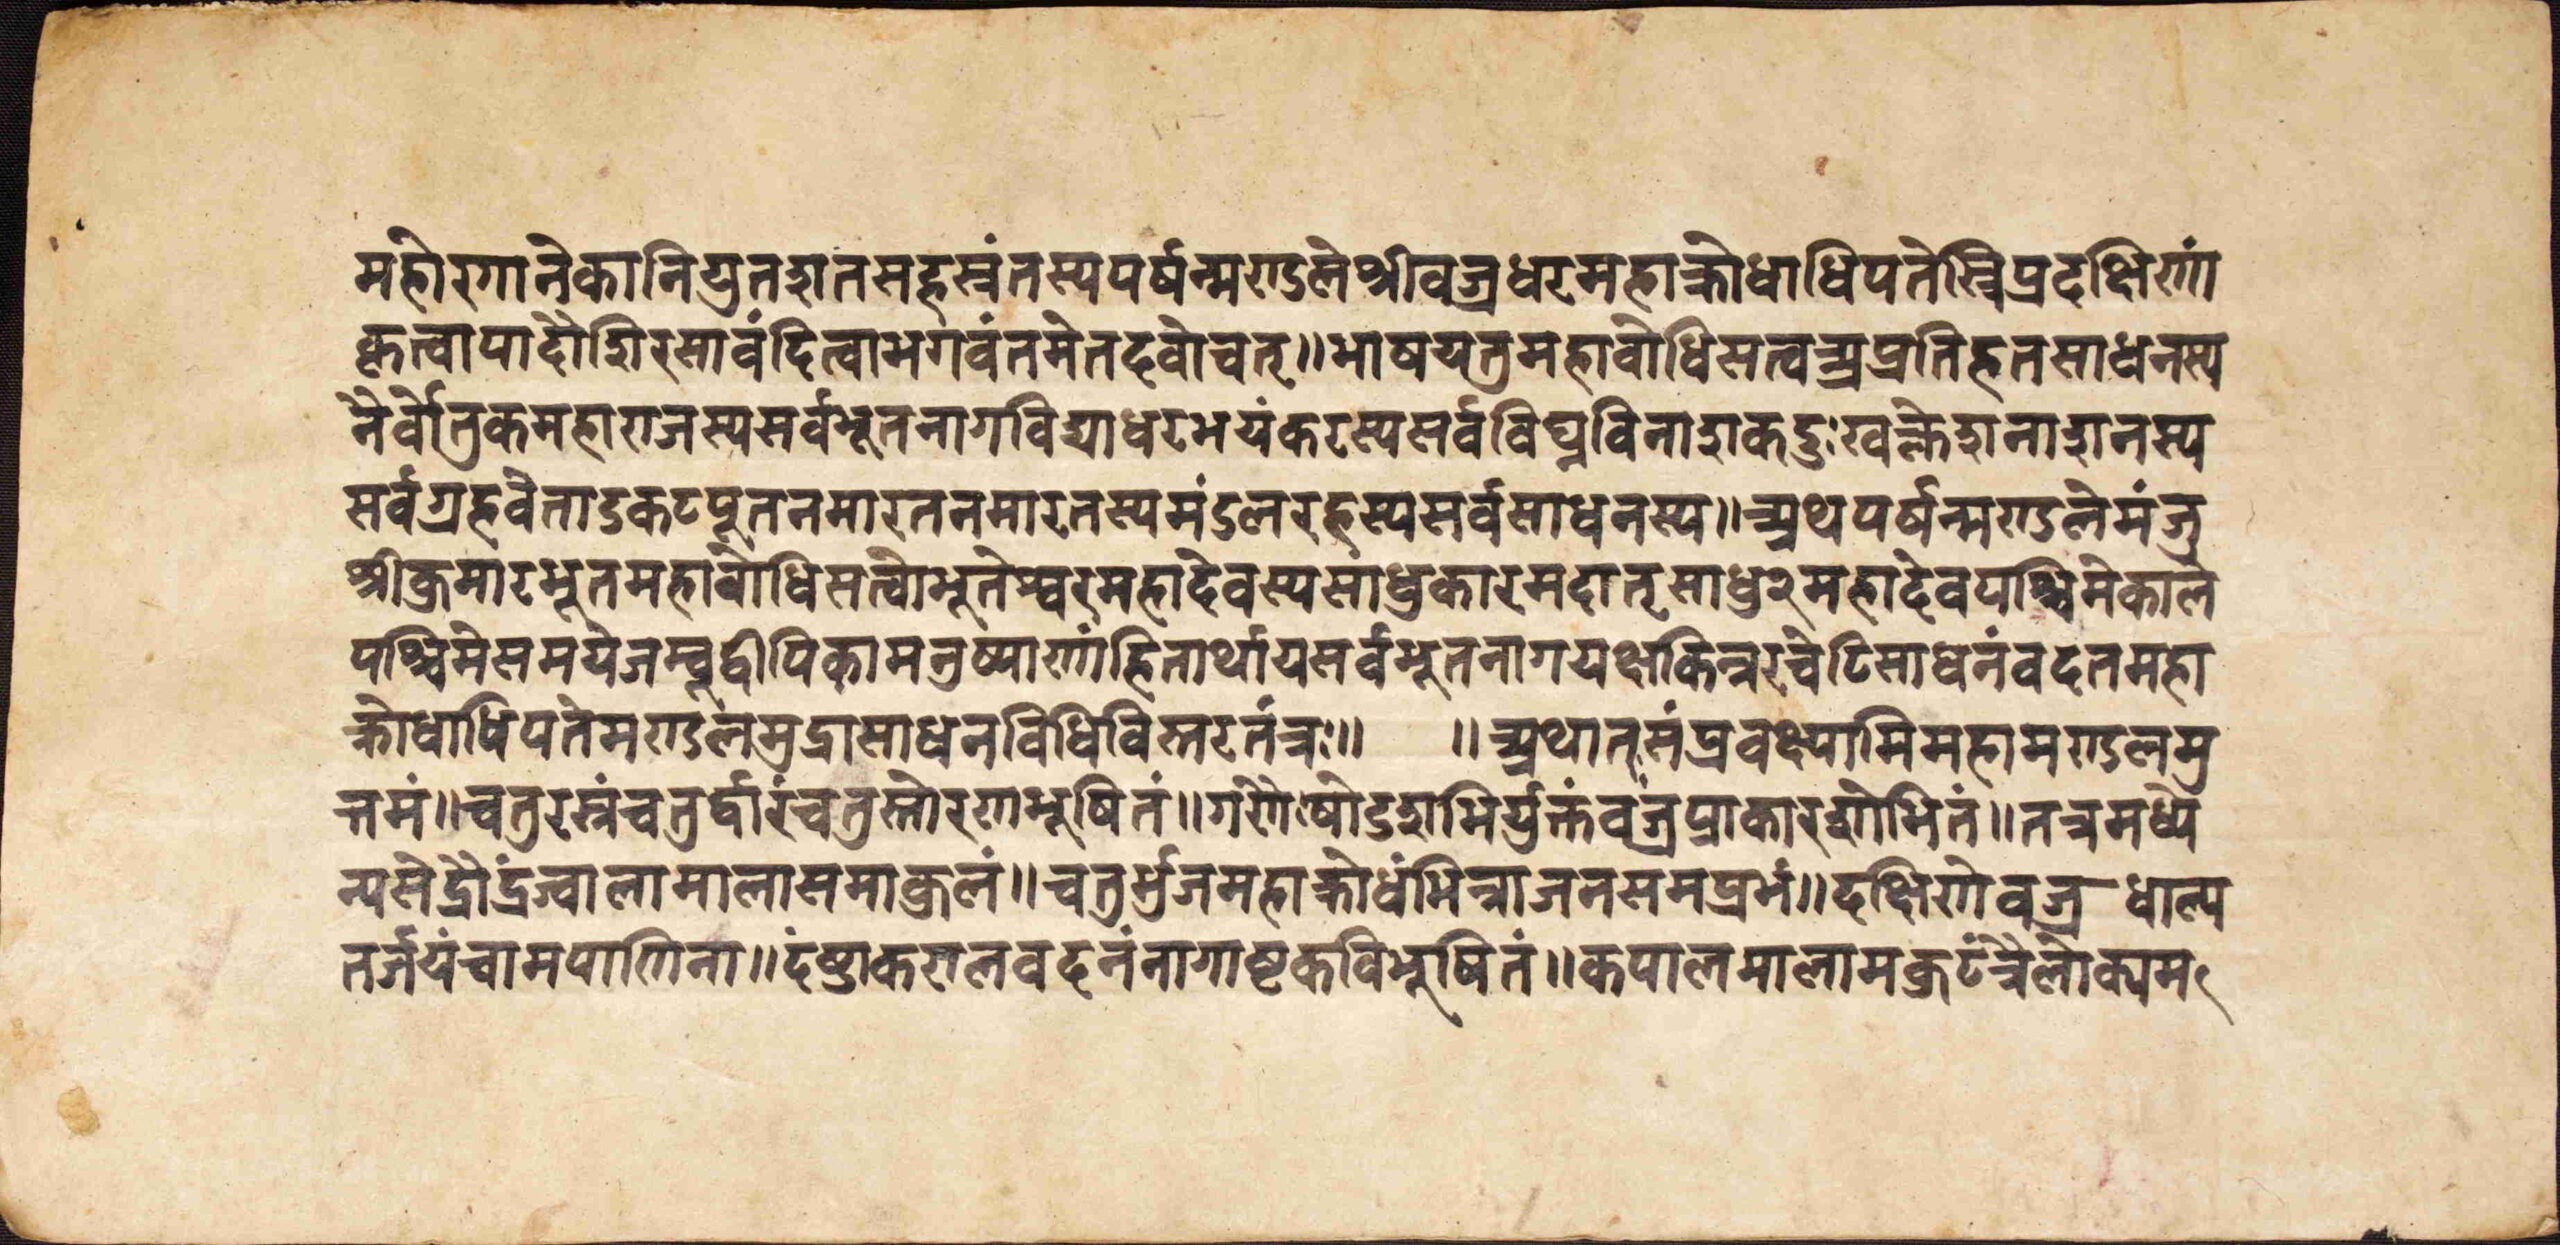 महोरगानेकानियुतशतसहस्रंतस्यपर्षन्मण्डलेश्रीवज्रधरमहाक्रोधाधिपतेस्त्रिप्रदक्षिणां
कृत्वापादौशिरसावंदित्वाभगवंतमेतदवोचत्॥भाषयतुमहावोधिसत्वअप्रतिहतसाधनस्य
नैर्वोतुकमहाराजस्यसर्वभूतनागविद्याधरभयंकरस्यसर्वविघ्नविनाशकदुःखक्लेशनाशनस्य
सर्वग्रहवैताडकटपूतनमारतनमारतस्यमंडलरहस्यसर्वसाधनस्य॥अथपर्षन्मण्डलेमंजु
श्रीकुमारभूतमहावोधिसत्वोभूतेश्वरमहादेवस्यसाधुकारमदात्साधु२महादेवपश्चिमेकाले
पश्चिमेसमयेजम्बूद्वीपिकामनुष्याणांहितार्थायसर्वभूतनागयक्षकिन्नरचेटिसाधनंवदतमहा
क्रोधाधिपतेमण्डलमुद्रासाधनविधिविस्तरतंत्रः॥ ॥अथातृसंप्रवक्ष्यामिमहामण्डलमु
त्तमं॥चतुरस्रंचतुर्द्वारंचतुस्तोरणभूषितं॥गणैःषोडशभिर्युक्तंवज्रंप्राकारशोभितं॥तत्रमध्ये
न्यसेद्रौद्रंज्वालामालासमाकुलं॥चतुर्भुजमहाक्रोधंभिन्नाजनसमप्रभं॥दक्षिणेवज्र-धाल्प
तर्ज्जयंचामपाणिना॥दंष्ट्राकरालवदनंनागाष्टकविभूषितं॥कपालमालामकुटंत्रैलोक्यम